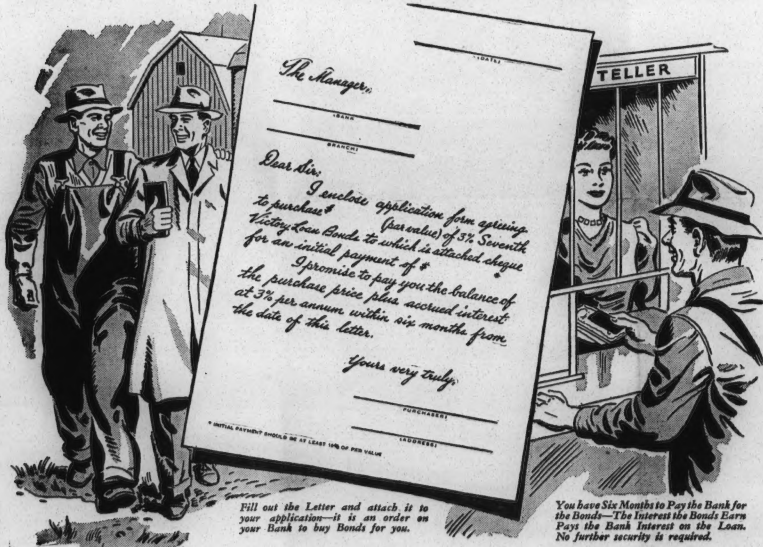 (DATE)
The Manager,
(BANK
BRANCH)
Dear Sir:
I enclose application form agreeing
to purchase $ (par value) of 3% Seventh
Victory Loan Bonds to which is attached cheque
for an initial payment of $ *
I promise to pay you the balance of
the purchase price plus accrued interest
at 3% per annum within six months from
the date of this letter.
Yours very truly,
PURCHASER)
(ADDRESS)
* INITIAL PAYMENT SHOULD BE AT LEAST 10% OF PER VALUE
TELLER
Fill out the Letter and attach it to
your application—it is an order on
your Bank to buy Bonds for you.
You have Six Months to Pay the Bank for
the Bonds—The Interest the Bonds Earn
Pays the Bank Interest on the Loan.
No further security is required.